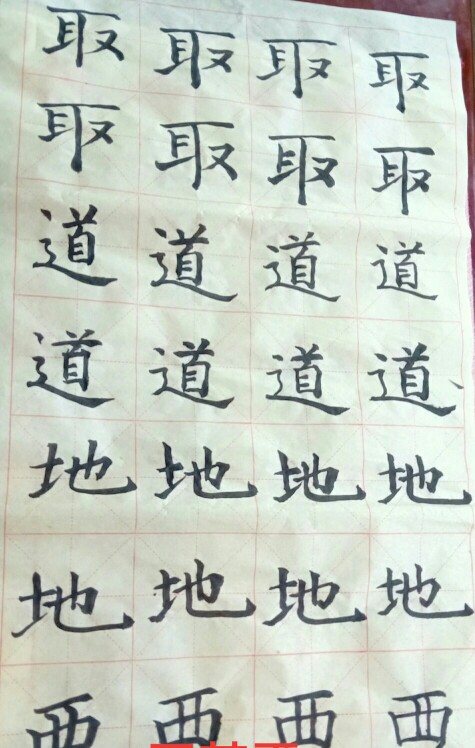 取取取取
取取取取
道道道道
道道道道
地地地地
地地地地
西西西西